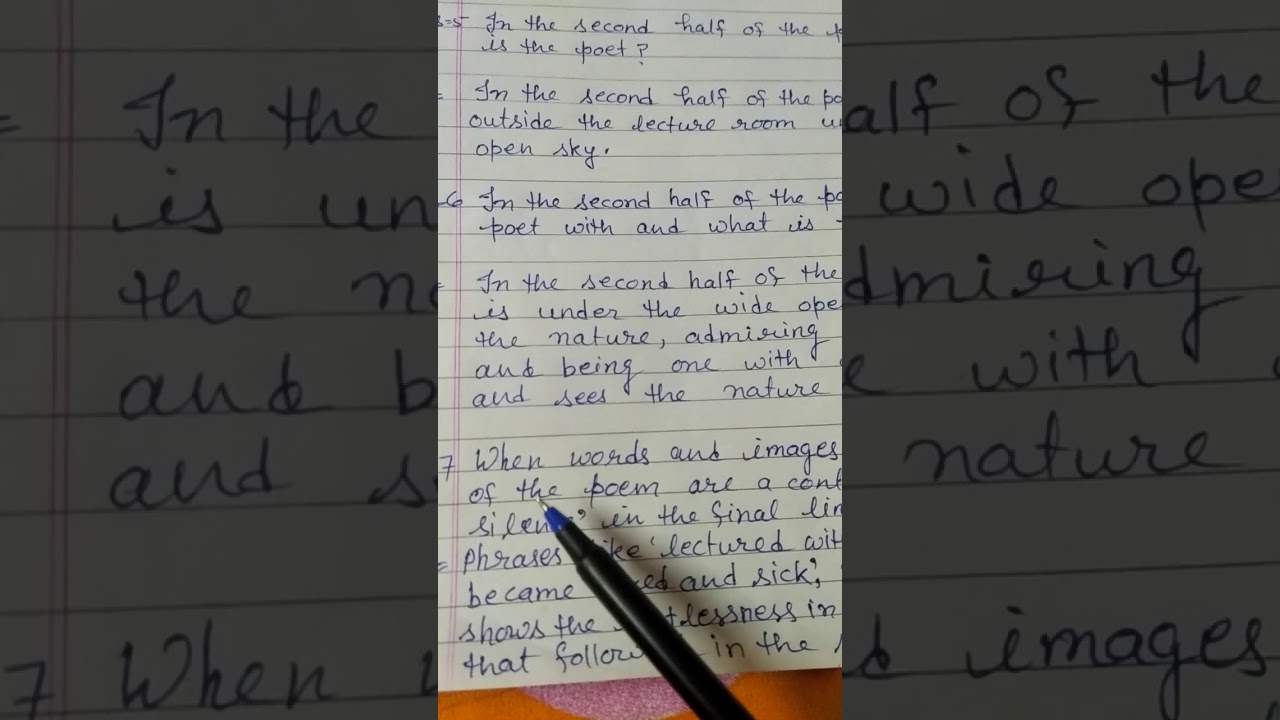 In the second half of the
is the poet?
In the second half of the po
outside the lecture room u
open sky.
6 In the second half of the po
poet with and what is
= In the second half of the
is under the wide ope
the nature, admiring
and being one with
and sees the nature
7 When words and images
of the poem are a cont
silence' in the final lin
= Phrases like 'lectured wit
became and sick,'
shows the in
that follow in the